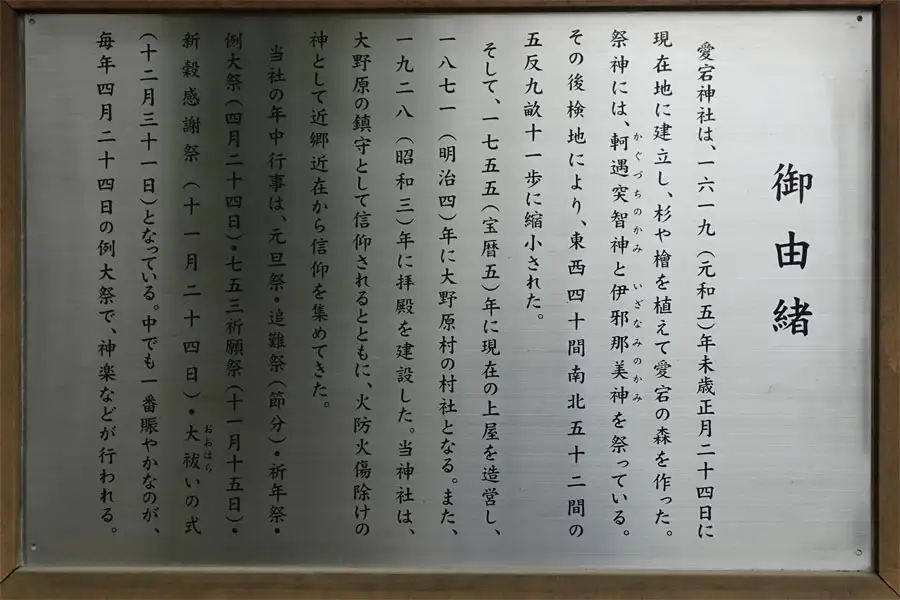 御由緒
愛宕神社は、一六一九（元和五）年未歳正月二十四日に
現在地に建立し、杉や檜を植えて愛宕の森を作った。
祭神には、軻遇突智神と伊邪那美神を祭っている。
かぐづちのかみ　いざなみのかみ
その後検地により、東西四十間南北五十二間の
五反九畝十一歩に縮小された。
そして、一七五五（宝暦五）年に現在の上屋を造営し、
一八七一（明治四）年に大野原村の村社となる。また、
一九二八（昭和三）年に拝殿を建設した。当神社は、
大野原の鎮守として信仰されるとともに、火防火傷除けの
神として近郷近在から信仰を集めてきた。
当社の年中行事は、元旦祭・追難祭（節分）・祈年祭・
例大祭（四月二十四日）・七五三祈願祭（十一月十五日）・
新穀感謝祭（十一月二十四日）・大祓いの式
おおはら
（十二月三十一日）となっている。中でも一番賑やかなのが、
毎年四月二十四日の例大祭で、神楽などが行われる。